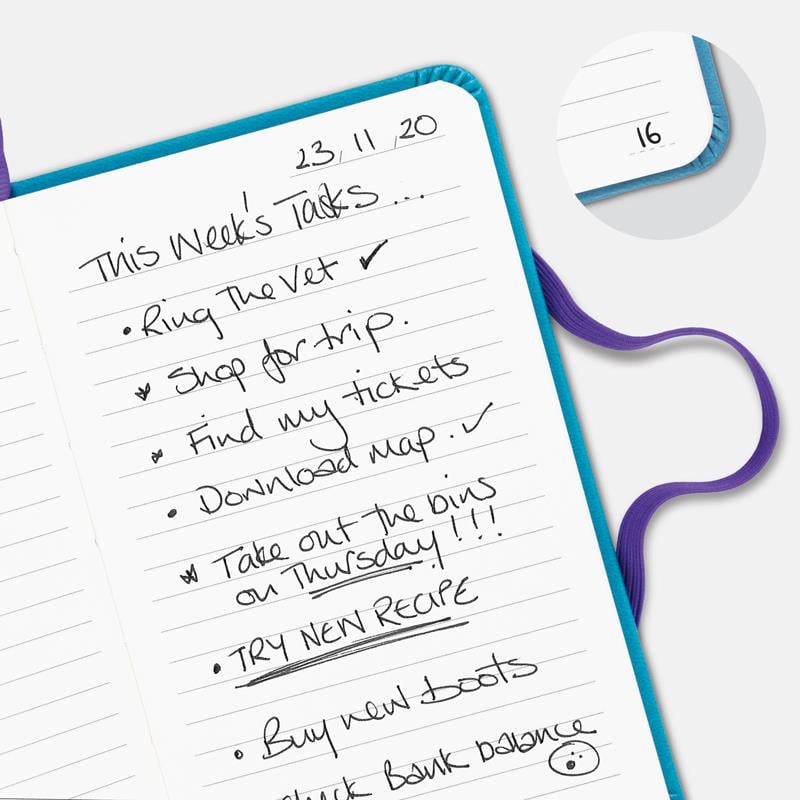 23/11/20
This Week's Tasks...
• Ring The Vet ✓
* Shop for trip.
* Find my tickets
• Download map. ✓
* Take out the bins
on Thursday!!!
• TRY NEW RECIPE
• Buy new boots
Check Bank balance
16